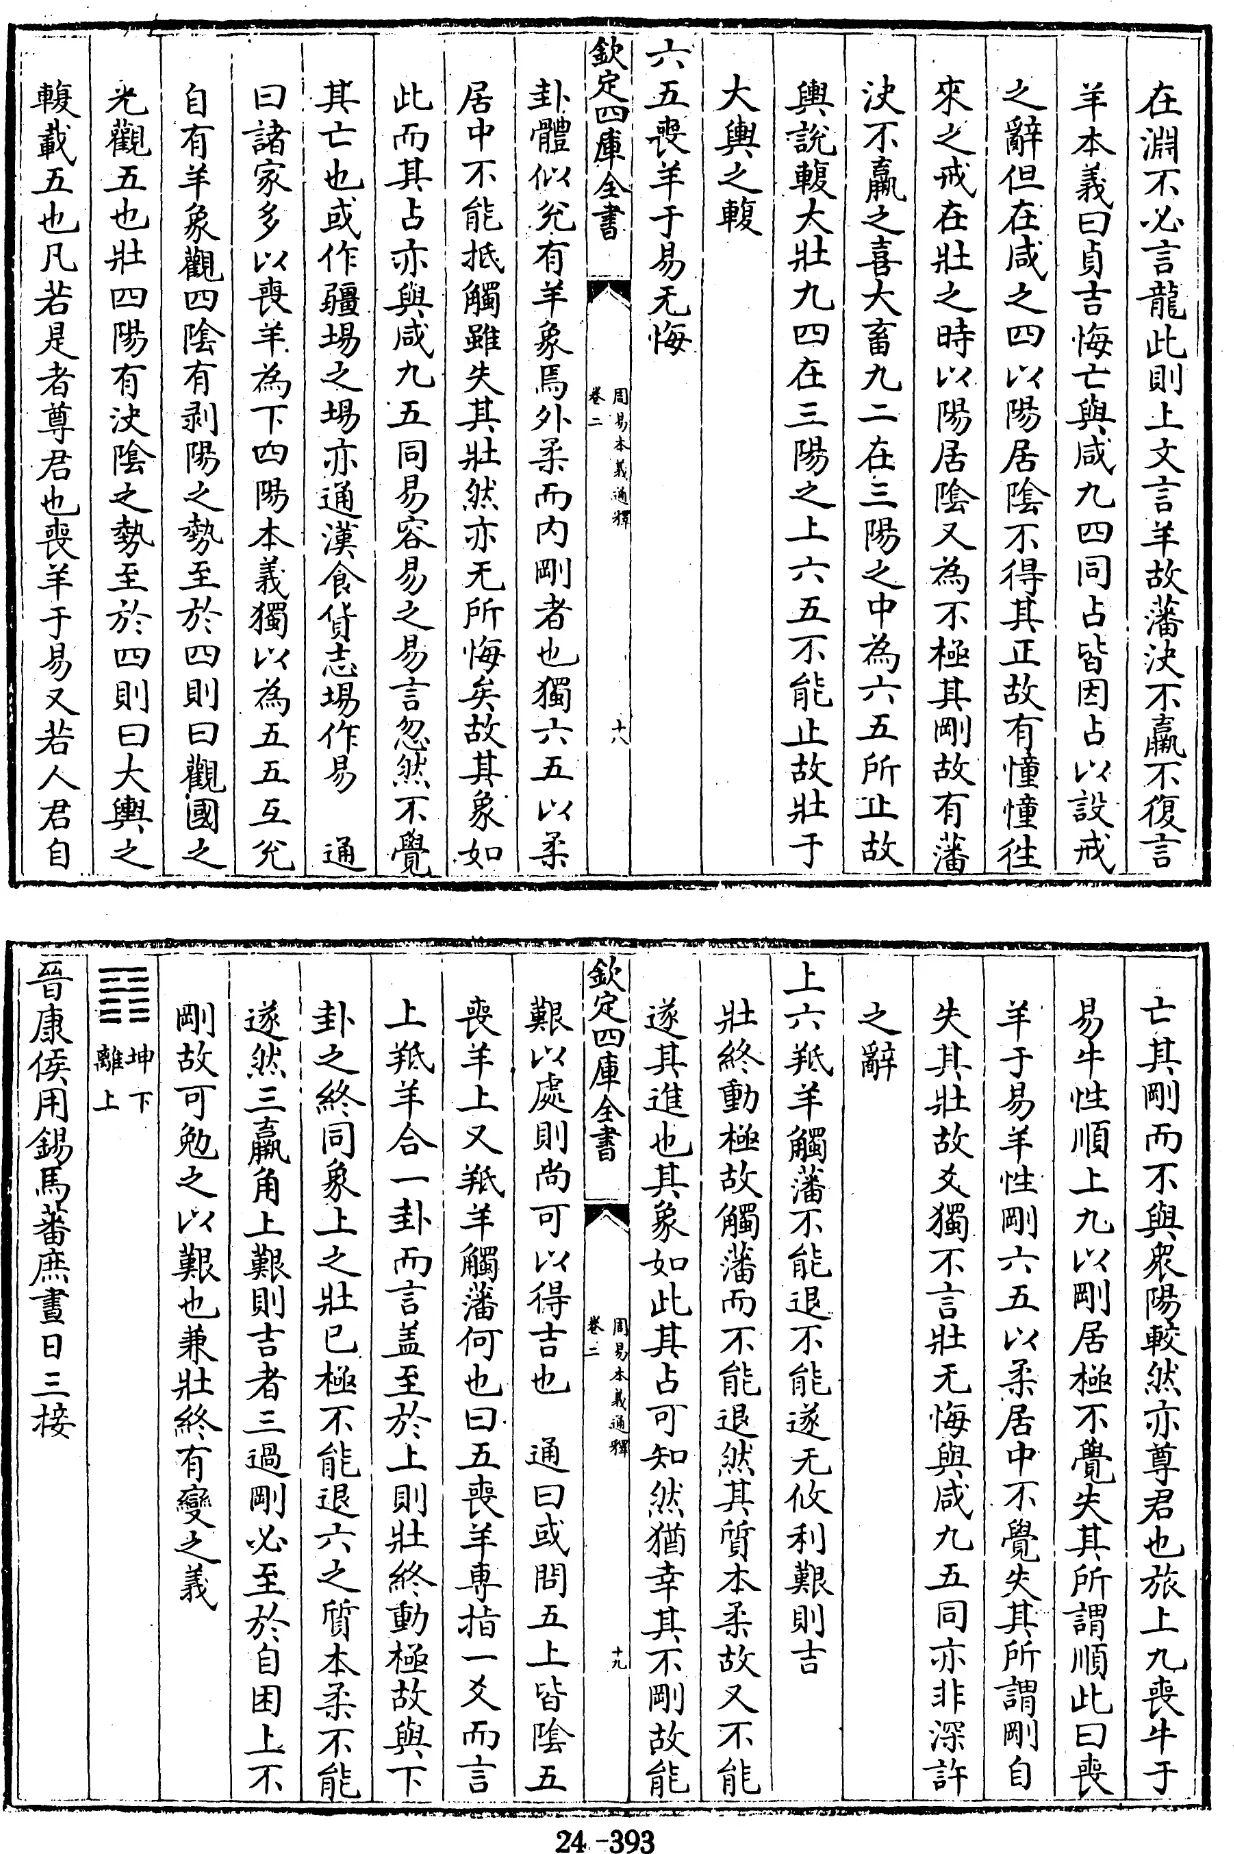 在淵不必言龍此則上文言羊故藩決不羸不復言
羊本義曰貞吉悔亡與咸九四同占皆因占以設戒
之辭但在咸之四以陽居陰不得其正故有憧憧徃
來之戒在壯之時以陽居陰又為不極其剛故有藩
決不羸之喜大畜九二在三陽之中為六五所止故
輿說輹大壯九四在三陽之上六五不能止故壯于
大輿之輹
六五喪羊于易无悔
欽定四庫全書
周易本義通釋
卷二
十八
卦體似兊有羊象焉外柔而内剛者也獨六五以柔
居中不能抵觸雖失其壯然亦无所悔矣故其象如
此而其占亦與咸九五同易容易之易言忽然不覺
其亡也或作疆埸之埸亦通漢食貨志埸作易 通
曰諸家多以喪羊為下四陽本義獨以為五五互兊
自有羊象觀四陰有剥陽之勢至於四則曰觀國之
光觀五也壯四陽有決陰之勢至於四則曰大輿之
輹載五也凡若是者尊君也喪羊于易又若人君自
亡其剛而不與衆陽較然亦尊君也旅上九喪牛于
易牛性順上九以剛居極不覺失其所謂順此曰喪
羊于易羊性剛六五以柔居中不覺失其所謂剛自
失其壯故爻獨不言壯无悔與咸九五同亦非深許
之辭
上六羝羊觸藩不能退不能遂无攸利艱則吉
壯終動極故觸藩而不能退然其質本柔故又不能
遂其進也其象如此其占可知然猶幸其不剛故能
欽定四庫全書
周易本義通釋
卷二
十九
艱以處則尚可以得吉也 通曰或問五上皆陰五
喪羊上又羝羊觸藩何也曰五喪羊專指一爻而言
上羝羊合一卦而言盖至於上則壯終動極故與下
卦之終同象上之壯已極不能退六之質本柔不能
遂然三羸角上艱則吉者三過剛必至於自困上不
剛故可勉之以艱也兼壯終有變之義
坤下
離上
晉康侯用錫馬蕃庶晝日三接
24-393